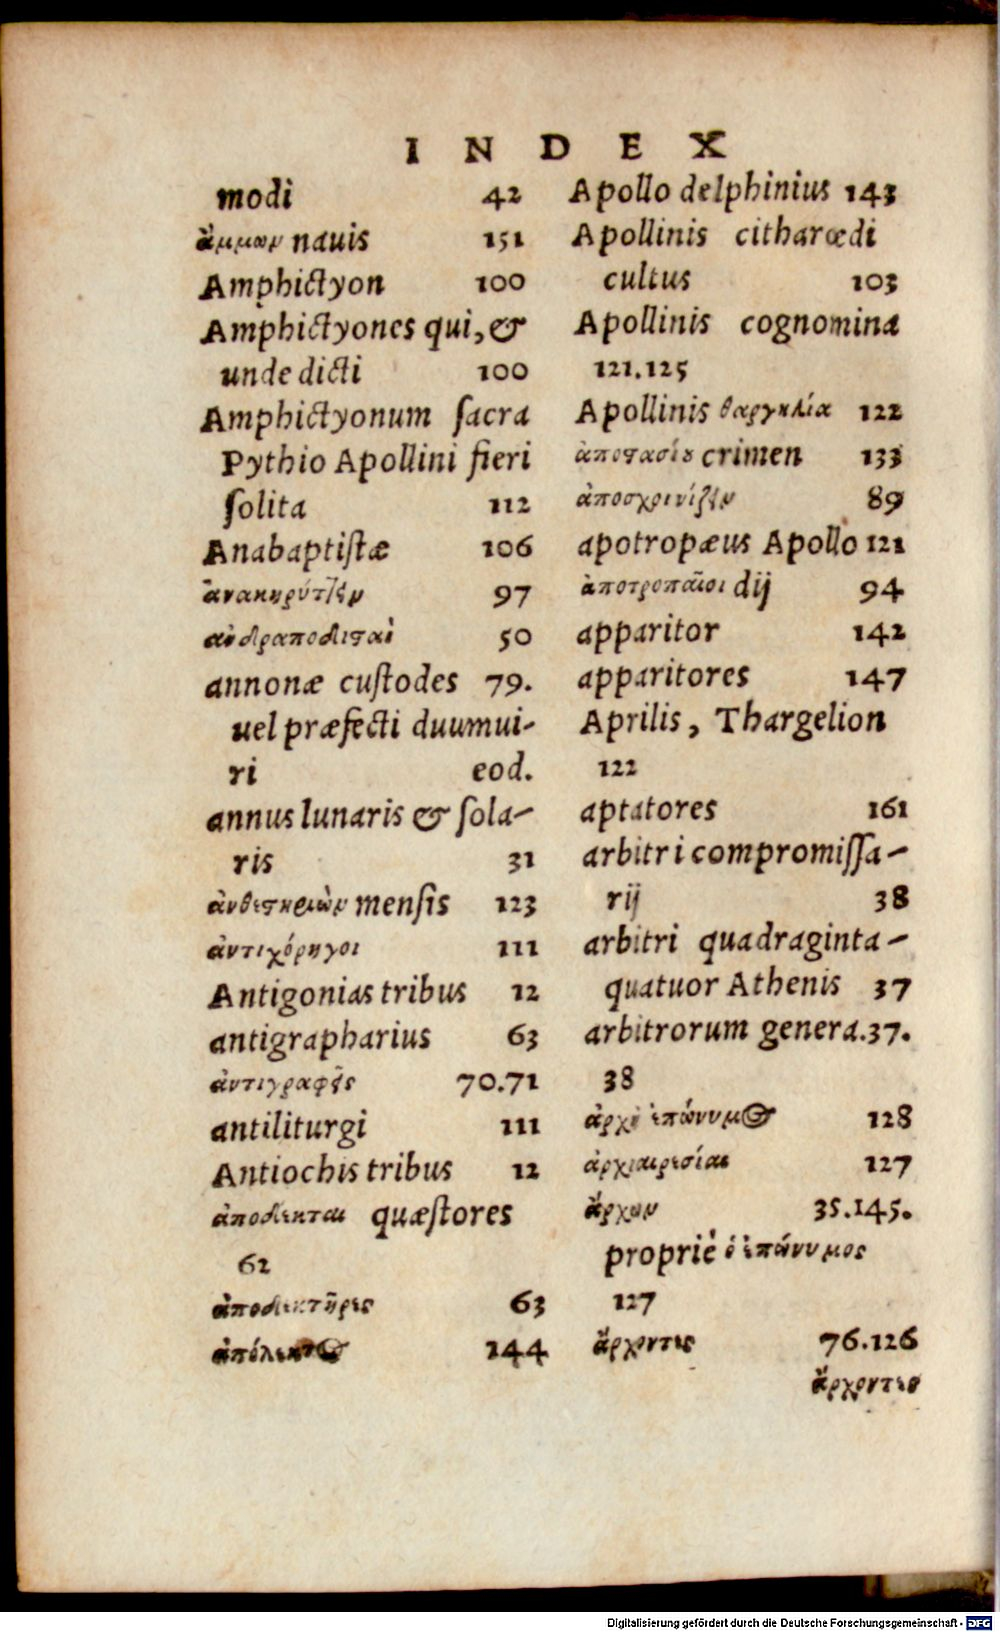 INDEX
modi 42
ἄμμων nauis 151
Amphictyon 100
Amphictyones qui, &
unde dicti 100
Amphictyonum ſacra
Pythio Apollini fieri
ſolita 112
Anabaptiſtæ 106
ἀνακηρύτζειν 97
ἀνδραποδισταὶ 50
annonæ cuſtodes 79.
uel præfecti duumui-
ri eod.
annus lunaris & ſola-
ris 31
ἀνθεστηριὼν menſis 123
ἀντιχόρηγοι 111
Antigonias tribus 12
antigrapharius 63
ἀντιγραφεῖς 70.71
antiliturgi 111
Antiochis tribus 12
ἀποδέκται quæſtores
62
ἀποδεκτῆρες 63
ἀπόλεκτος 144
Apollo delphinius 143
Apollinis citharœdi
cultus 103
Apollinis cognomina
121.125
Apollinis θαργηλία 122
ἀποστασίου crimen 133
ἀποσχοινίζειν 89
apotropæus Apollo 121
ἀποτροπαῖοι dij 94
apparitor 142
apparitores 147
Aprilis, Thargelion
122
aptatores 161
arbitri compromiſſa-
rij 38
arbitri quadraginta-
quatuor Athenis 37
arbitrorum genera.37.
38
ἀρχὴ ἐπώνυμος 128
ἀρχιαιρεσίαι 127
ἄρχων 35.145.
propriè ὁ ἐπώνυμος
127
ἄρχοντες 76.126
ἄρχοντες
Digitalisierung gefördert durch die Deutsche Forschungsgemeinschaft - DFG